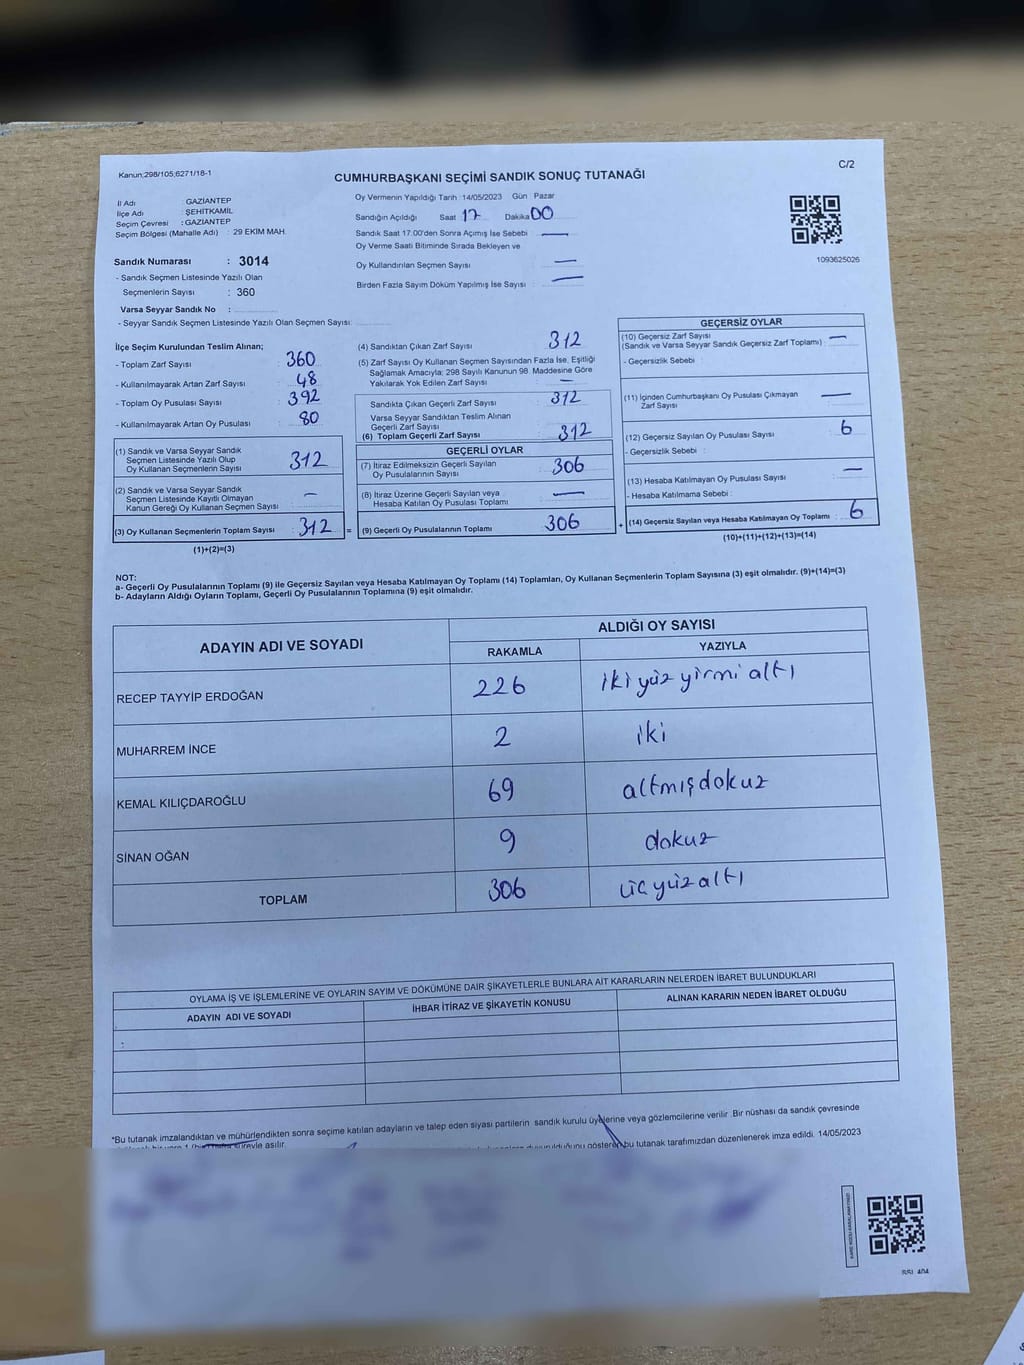 Kanun;298/105;6271/18-1
C/2
CUMHURBAŞKANI SEÇİMİ SANDIK SONUÇ TUTANAĞI
İl Adı : GAZİANTEP
İlçe Adı : ŞEHİTKAMİL
Seçim Çevresi : GAZİANTEP
Seçim Bölgesi (Mahalle Adı) : 29 EKİM MAH.
Sandık Numarası : 3014
- Sandık Seçmen Listesinde Yazılı Olan
Seçmenlerin Sayısı : 360
Varsa Seyyar Sandık No :
- Seyyar Sandık Seçmen Listesinde Yazılı Olan Seçmen Sayısı:
Oy Vermenin Yapıldığı Tarih :14/05/2023 Gün Pazar
Sandığın Açıldığı Saat 17 Dakika 00
Sandık Saat 17.00'den Sonra Açımış İse Sebebi —
Oy Verme Saati Bitiminde Sırada Bekleyen ve
Oy Kullandırılan Seçmen Sayısı —
Birden Fazla Sayım Döküm Yapılmış İse Sayısı : —
1093625026
İlçe Seçim Kurulundan Teslim Alınan;
- Toplam Zarf Sayısı : 360
- Kullanılmayarak Artan Zarf Sayısı : 48
- Toplam Oy Pusulası Sayısı : 392
- Kullanılmayarak Artan Oy Pusulası : 80
(1) Sandık ve Varsa Seyyar Sandık
Seçmen Listesinde Yazılı Olup
Oy Kullanan Seçmenlerin Sayısı : 312
(2) Sandık ve Varsa Seyyar Sandık
Seçmen Listesinde Kayıtlı Olmayan
Kanun Gereği Oy Kullanan Seçmen Sayısı : —
(3) Oy Kullanan Seçmenlerin Toplam Sayısı : 312 =
(1)+(2)=(3)
(4) Sandıktan Çıkan Zarf Sayısı : 312
(5) Zarf Sayısı Oy Kullanan Seçmen Sayısından Fazla İse, Eşitliği
Sağlamak Amacıyla; 298 Sayılı Kanunun 98. Maddesine Göre
Yakılarak Yok Edilen Zarf Sayısı : —
Sandıkta Çıkan Geçerli Zarf Sayısı : 312
Varsa Seyyar Sandıktan Teslim Alınan
Geçerli Zarf Sayısı :
(6) Toplam Geçerli Zarf Sayısı : 312
GEÇERLİ OYLAR
(7) İtiraz Edilmeksizin Geçerli Sayılan
Oy Pusulalarının Sayısı : 306
(8) İtiraz Üzerine Geçerli Sayılan veya
Hesaba Katılan Oy Pusulası Toplamı : —
(9) Geçerli Oy Pusulalarının Toplamı : 306 +
GEÇERSİZ OYLAR
(10) Geçersiz Zarf Sayısı
(Sandık ve Varsa Seyyar Sandık Geçersiz Zarf Toplamı) : —
- Geçersizlik Sebebi :
(11) İçinden Cumhurbaşkanı Oy Pusulası Çıkmayan
Zarf Sayısı : —
(12) Geçersiz Sayılan Oy Pusulası Sayısı : 6
- Geçersizlik Sebebi :
(13) Hesaba Katılmayan Oy Pusulası Sayısı : —
- Hesaba Katılmama Sebebi :
(14) Geçersiz Sayılan veya Hesaba Katılmayan Oy Toplamı : 6
(10)+(11)+(12)+(13)=(14)
NOT:
a- Geçerli Oy Pusulalarının Toplamı (9) ile Geçersiz Sayılan veya Hesaba Katılmayan Oy Toplamı (14) Toplamları, Oy Kullanan Seçmenlerin Toplam Sayısına (3) eşit olmalıdır. (9)+(14)=(3)
b- Adayların Aldığı Oyların Toplamı, Geçerli Oy Pusulalarının Toplamına (9) eşit olmalıdır.
ADAYIN ADI VE SOYADI
ALDIĞI OY SAYISI
RAKAMLA YAZIYLA
RECEP TAYYİP ERDOĞAN 226 iki yüz yirmi altı
MUHARREM İNCE 2 iki
KEMAL KILIÇDAROĞLU 69 altmışdokuz
SİNAN OĞAN 9 dokuz
TOPLAM 306 üç yüz altı
OYLAMA İŞ VE İŞLEMLERİNE VE OYLARIN SAYIM VE DÖKÜMÜNE DAİR ŞİKAYETLERLE BUNLARA AİT KARARLARIN NELERDEN İBARET BULUNDUKLARI
ADAYIN ADI VE SOYADI İHBAR İTİRAZ VE ŞİKAYETİN KONUSU ALINAN KARARIN NEDEN İBARET OLDUĞU
:
*Bu tutanak imzalandıktan ve mühürlendikten sonra seçime katılan adayların ve talep eden siyasi partilerin sandık kurulu üyelerine veya gözlemcilerine verilir .Bir nüshası da sandık çevresinde
süreyle asılır. gösteren bu tutanak tarafımızdan düzenlenerek imza edildi. 14/05/2023